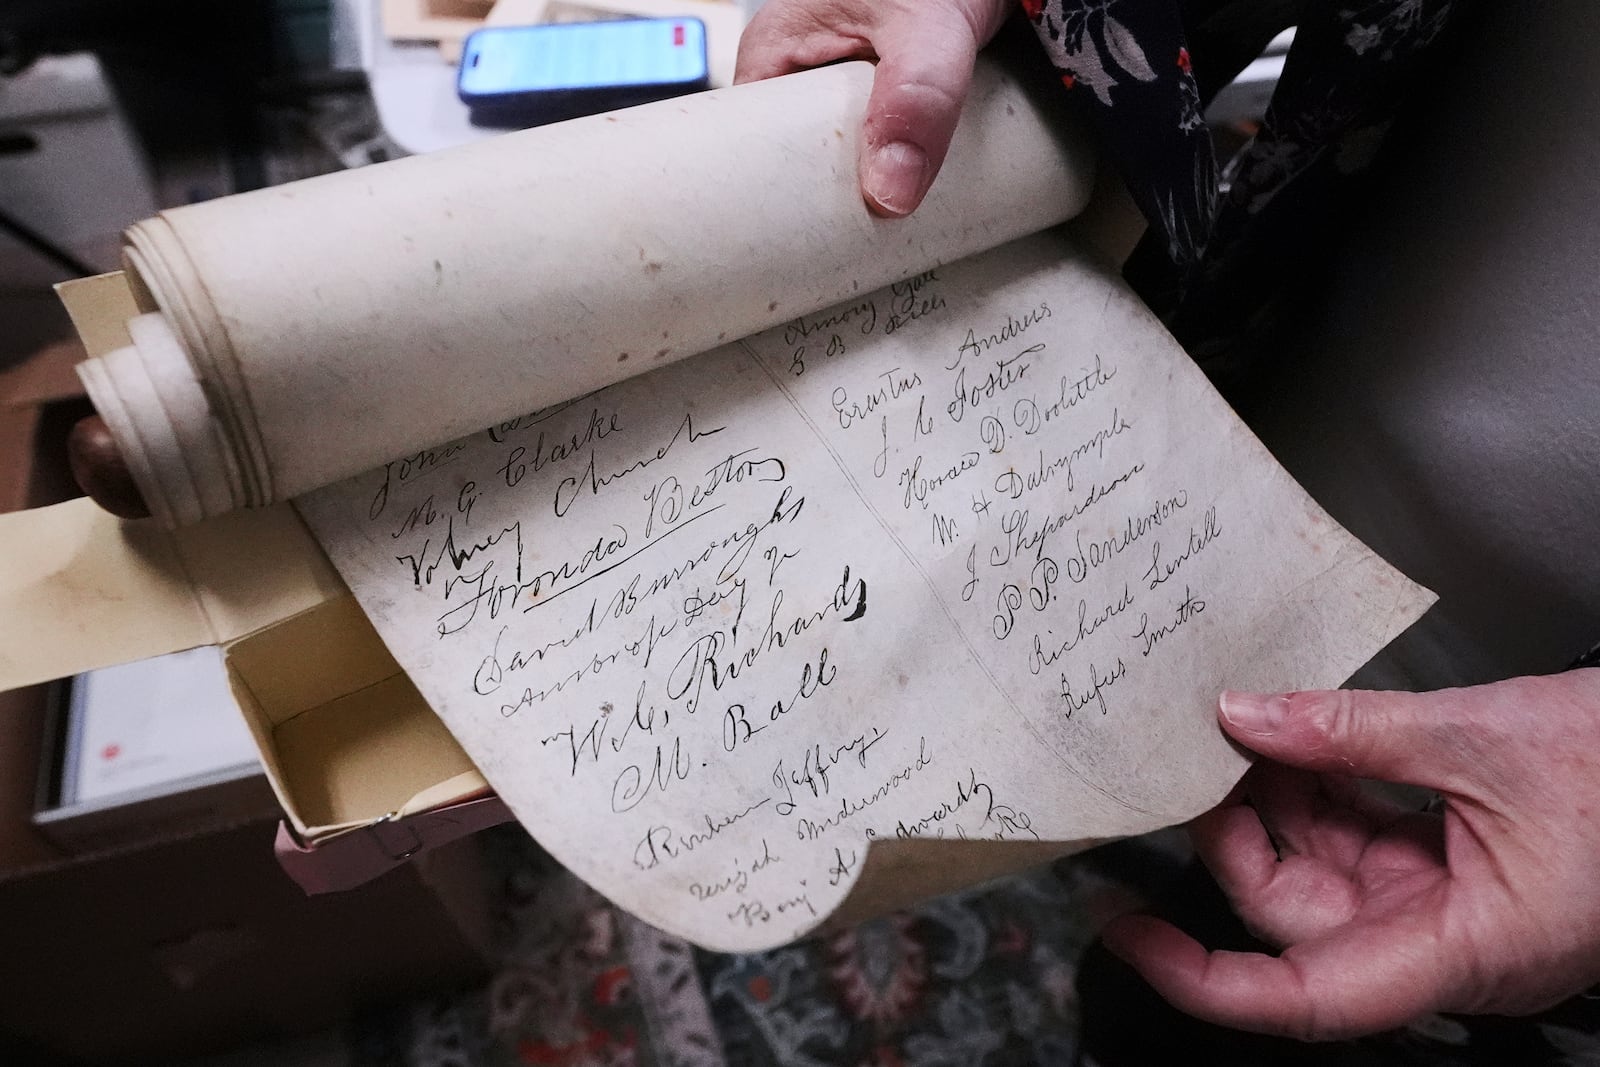 John
M. G. Clarke
Volney Church
Foronda Bestor
David Burroughs
Ambrose Day Jr
W. C. Richards
M. Ball
Reuben Jeffrey,
Underwood
Benj A Edwards
Amory Gale
G B
Erastus Andrews
J. C Foster
Horace D. Doolittle
W. H Dalrymple
J Shepardson
P. P. Sanderson
Richard Lentell
Rufus Smith